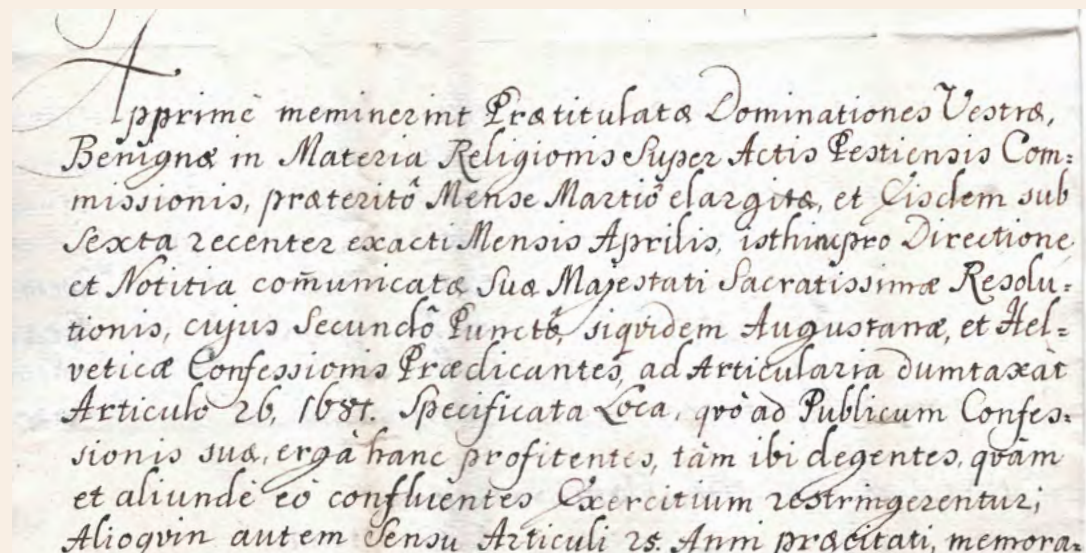 Apprimè meminerint Prætitulatæ Dominationes Vestræ,
Benignæ in Materia Religionis Super Actis Pestiensis Com:
missionis, præteritô Mense Martiô elargitæ, et Eisdem sub
Sexta recenter exacti Mensis Aprilis, isthinc pro Directione
et Notitia com̃unicatæ Suæ Majestati Sacratissimæ Resolu:
tionis, cujus Secundô Punctô, siqvidem Augustanæ, et Hel:
veticæ Confessionis Prædicantes, ad Articularia dumtaxàt
Articulo 26, 1681. Specificata Loca, qvò ad Publicum Confes:
sionis suæ, ergà hanc profitentes, tàm ibi degentes, qvàm
et aliundè eò confluentes Exercitium restringerentur;
Alioqvin autem Sensu Articuli 25. Anni præcitati, memora: